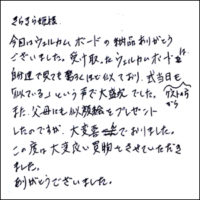 きらきら姫様
今日はウェルカムボードの納品ありがとう
ございました。受け取ったウェルカムボードは
自分達で見ても驚くほど似ており、式当日も
「似ている」という声で大盛況でした。
ゲストの方から
また、父母にも似顔絵をプレゼント
したのですが、大変喜んでおりました。
この度は大変良い買物をさせていただき
ました。
ありがとうございました。